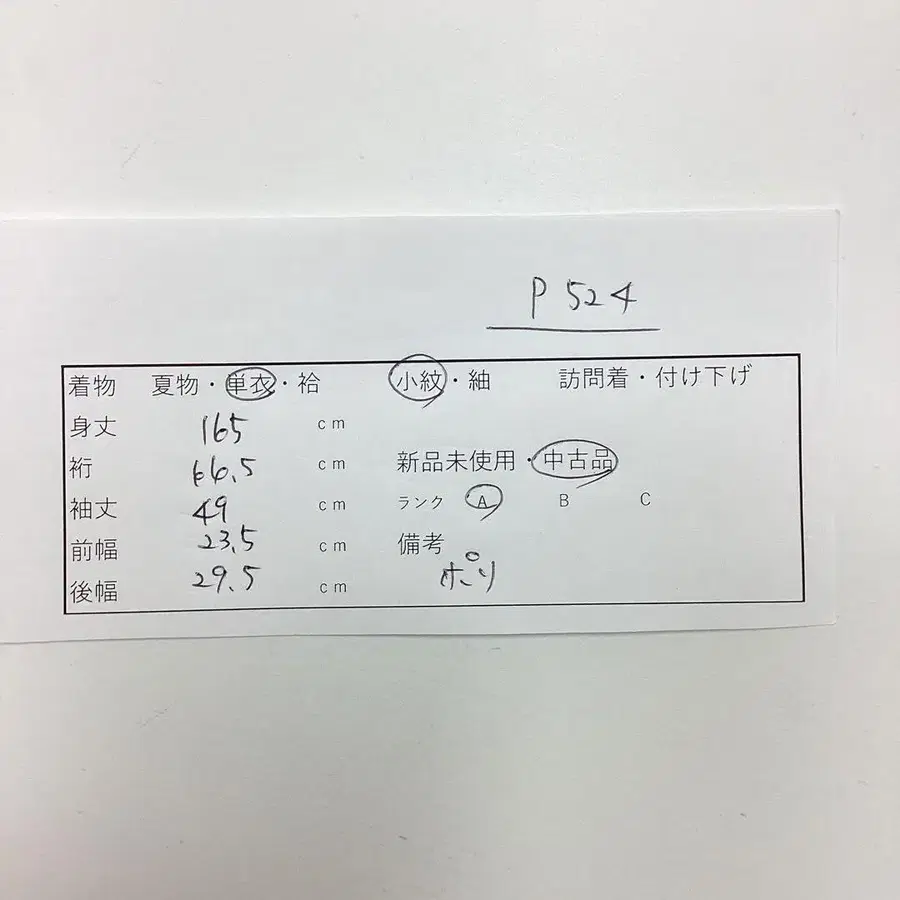 P524
着物 夏物・単衣・袷 小紋・紬 訪問着・付け下げ
身丈 165 cm
裄 66.5 cm 新品未使用・中古品
袖丈 49 cm ランク A B C
前幅 23.5 cm 備考
後幅 29.5 cm ポリ